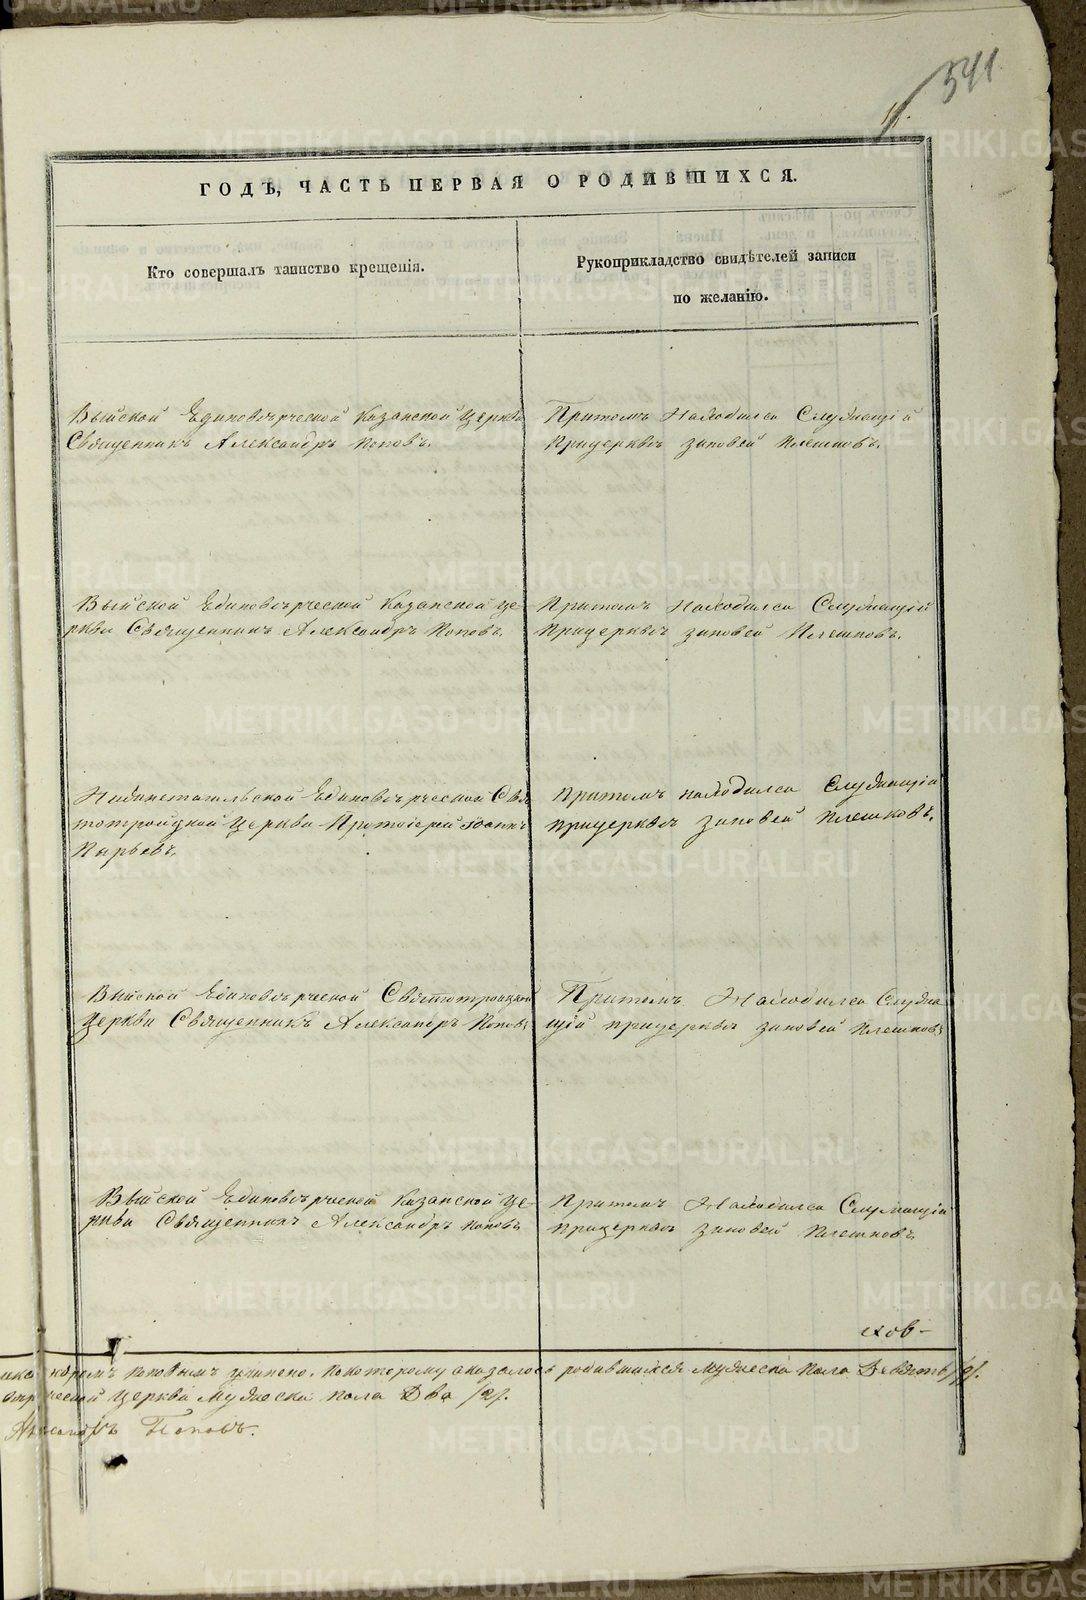 541
ГОДЪ, ЧАСТЬ ПЕРВАЯ О РОДИВШИХСЯ.
Кто совершалъ таинство крещенія.
Рукоприкладство свидѣтелей записи
по желанію.
Выйской Единовѣрческой Казанской Церкви
Священникъ Александръ Поповъ.
Притомъ Находился Служащій
Прицерквѣ зиновей Плешковъ.
Выйской Единовѣрческой Казанской Це-
ркви Священникъ Александръ Поповъ.
Притомъ Находился Служащій
Прицерквѣ зиновей Плешковъ.
Единовѣрческой Свя
тотроицкой Церкви Протоіерей Іоаннъ
Пырьевъ.
Притомъ находился Служащій
прицерквѣ зиновей Плешковъ.
Выйской Единовѣрческой Святотроицкой
Церкви Священникъ Александръ Поповъ
Притомъ Находился Служа
щій прицерквѣ зиновей Плешковъ
Выйской Единовѣрческой Казанской Це-
ркви Священникъ Александръ Поповъ
Притомъ Находился Служащій
прицерквѣ зиновей Плешковъ
ндромъ Поповымъ чинено. Покоторому оказалось родившихся Мужеска Пола Девять /9/.
Церкви Мужеска пола Два /2/.
Александръ Поповъ.
METRIKI.GASO-URAL.RU